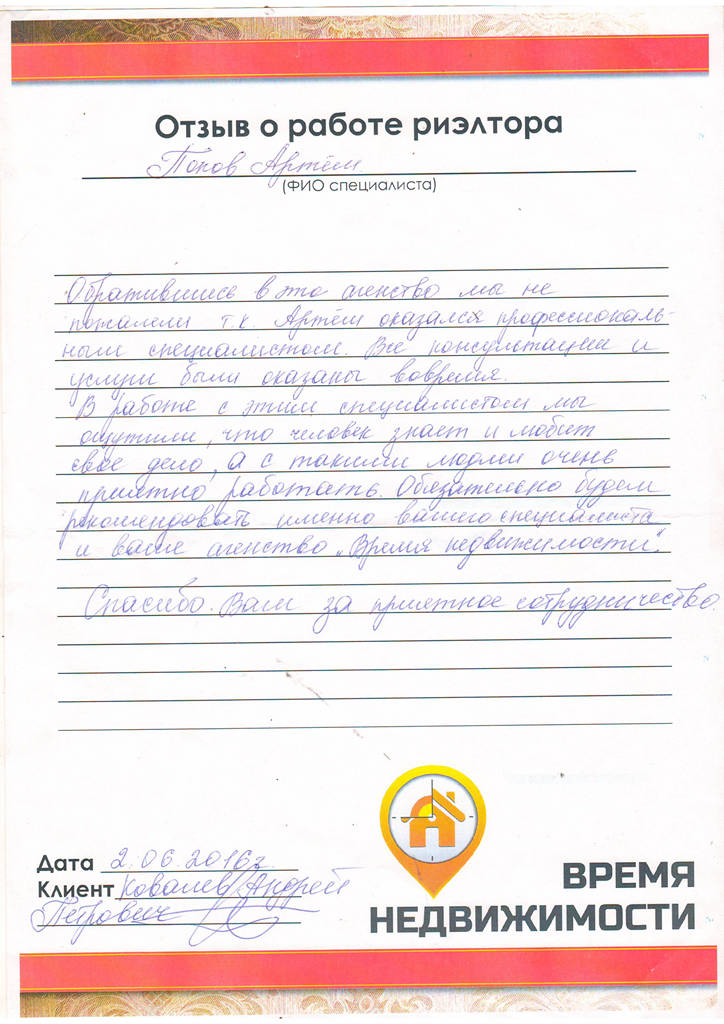 Отзыв о работе риэлтора
Попов Артём
(ФИО специалиста)
Обратившись в это агенство мы не
пожалели т.к. Артём оказался профессиональ-
ным специалистом. Все консультации и
услуги были оказаны вовремя.
В работе с этим специалистом мы
ощутили, что человек знает и любит
своё дело, а с такими людми очень
приятно работать. Обязательно будем
рекомендовать именно вашего специалиста
и ваше агенство „Время недвижимости".
Спасибо Вам за приятное сотрудничество.
Дата 2.06.2016г.
Клиент Ковалев Андрей
Петрович
ВРЕМЯ
НЕДВИЖИМОСТИ